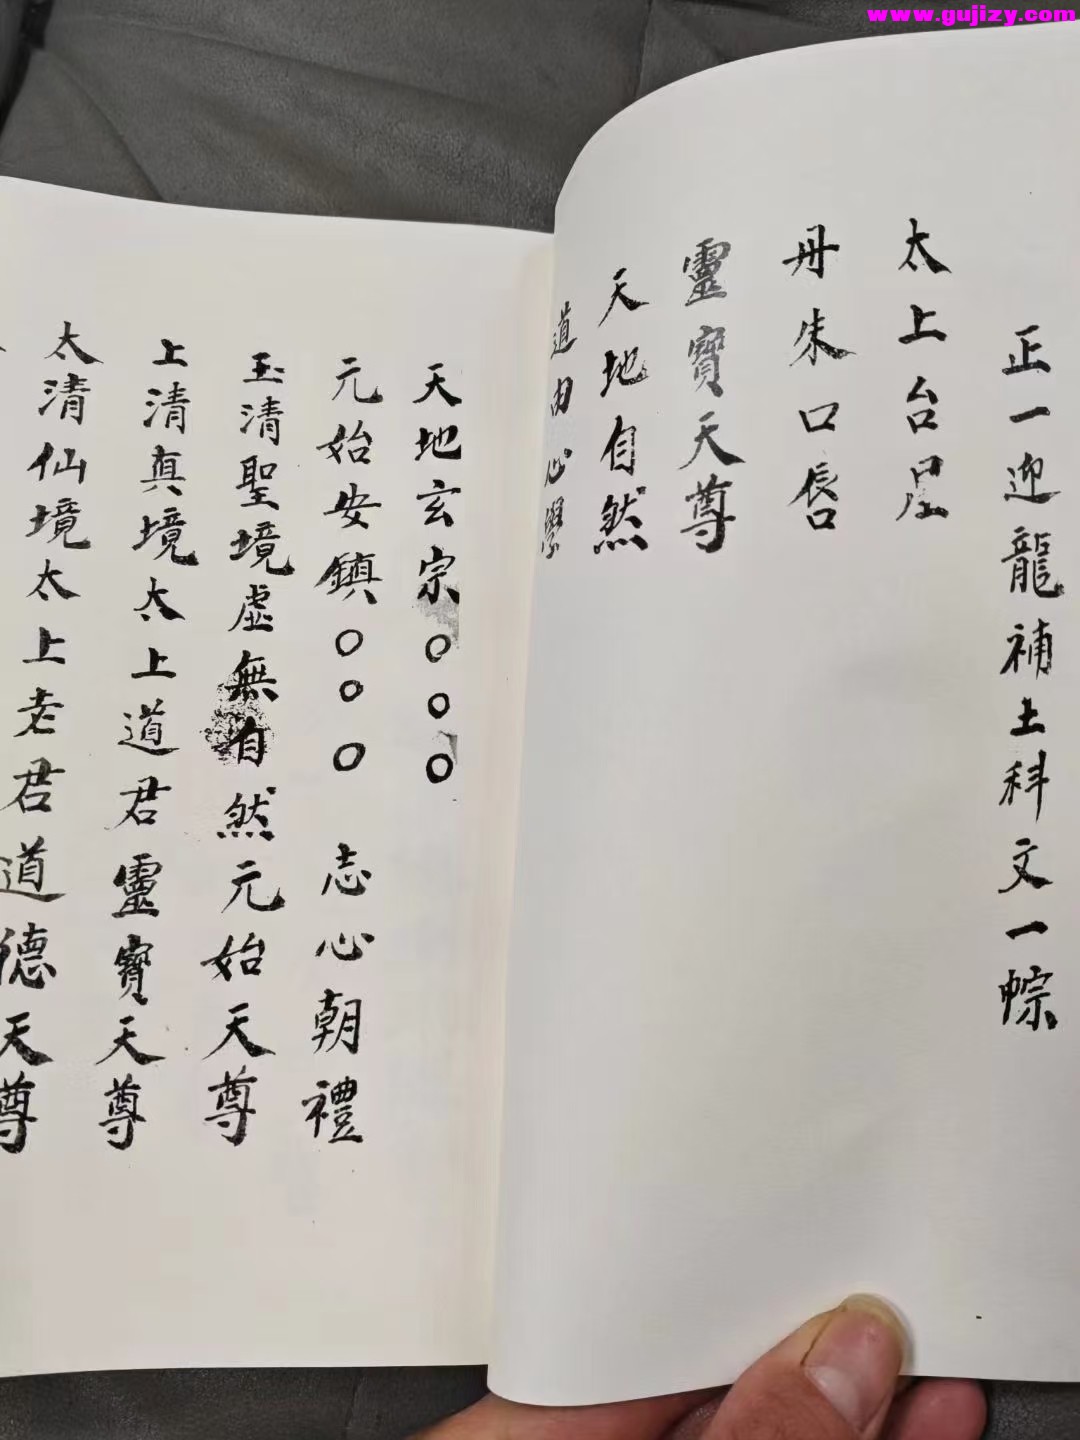 www.gujizy.com
正一迎龍補土科文一幤
太上台星
丹朱口唇
靈寶天尊
天地自然
道由心學
天地玄宗○○○
元始安鎮○○○ 志心朝禮
玉清聖境虛無自然元始天尊
上清真境太上道君靈寶天尊
太清仙境太上老君道德天尊